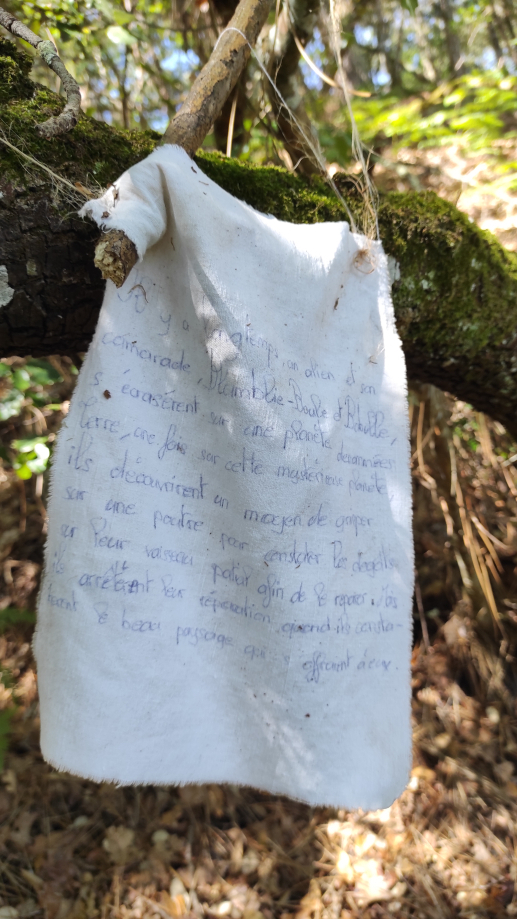 y a longtemps, un alien et son
camarade,
s'écrasèrent sur une planète
Terre, une fois sur cette mystérieuse planète,
ils découvrirent un moyen de
sur une poutre pour constater les dégâts
sur leur vaisseau afin de le réparer, ils
arrêtèrent leur réparation quand ils consta-
tèrent le beau paysage qui s'offraient à eux.